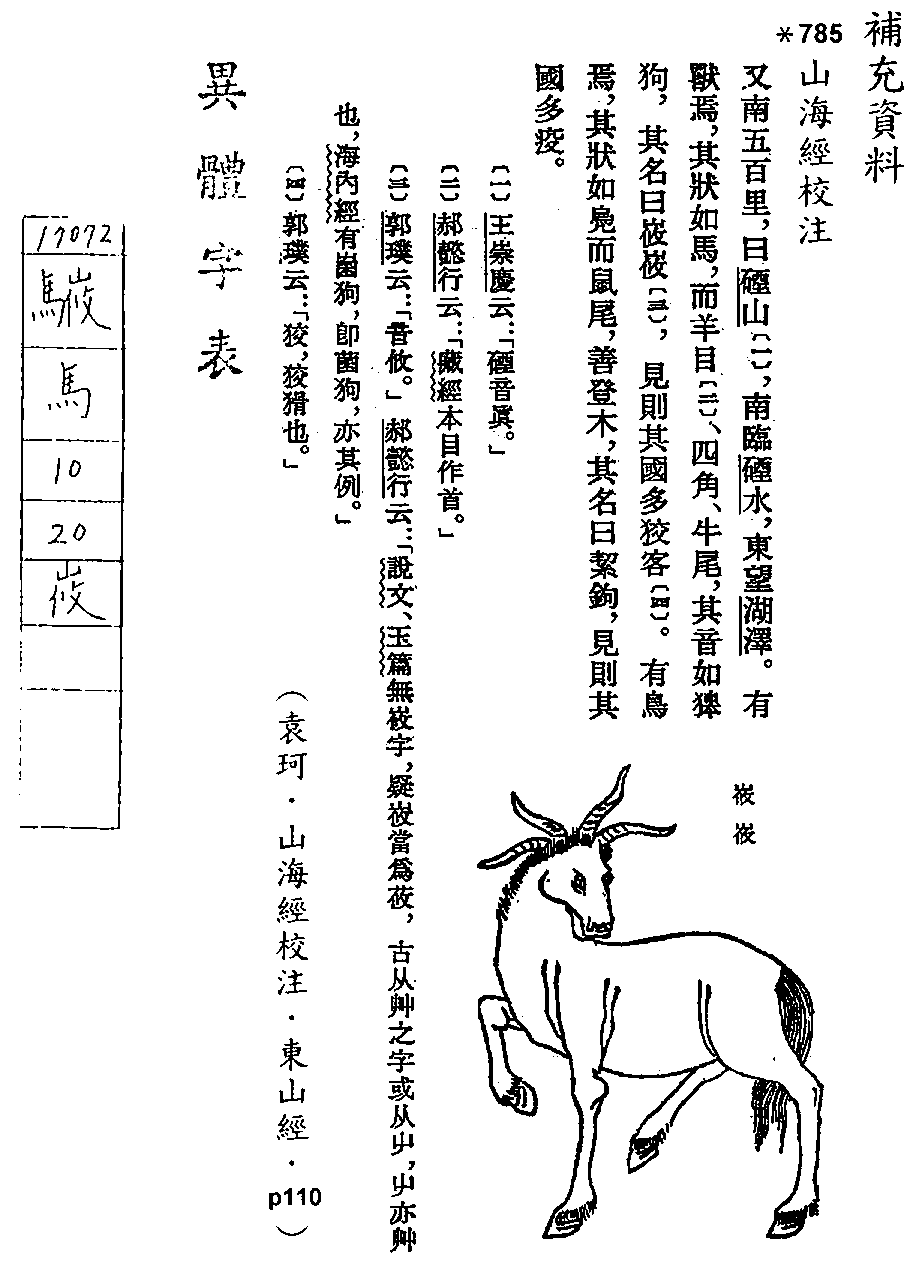 補充資料
*785
山海經校注
又南五百里，曰䃌山〔一〕，南臨䃌水，東望湖澤。有
獸焉，其狀如馬，而羊目〔二〕、四角、牛尾，其音如獆
狗，其名曰峳峳〔三〕，見則其國多狡客〔四〕。有鳥
焉，其狀如鳧而鼠尾，善登木，其名曰絜鉤，見則其
國多疫。
〔一〕王崇慶云：「䃌音真。」
〔二〕郝懿行云：「藏經本目作首。」
〔三〕郭璞云：「音攸。」郝懿行云：「說文、玉篇無峳字，疑峳當爲莜，古从艸之字或从屮，屮亦艸
也，海內經有崮狗，卽菌狗，亦其例。」
〔四〕郭璞云：「狡，狡猾也。」
（袁珂．山海經校注．東山經．p110）
峳峳
異體字表
17072
馬峳
馬
10
20
峳